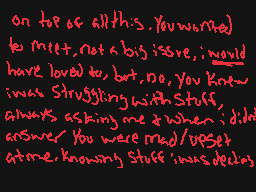 on top of all this. You wanted
to meet, not a big issue, i would
have loved to, but, no, you knew
i was struggling with stuff,
always asking me & when i didnt
answer You were mad/upset
at me. Knowing stuff i was dealing